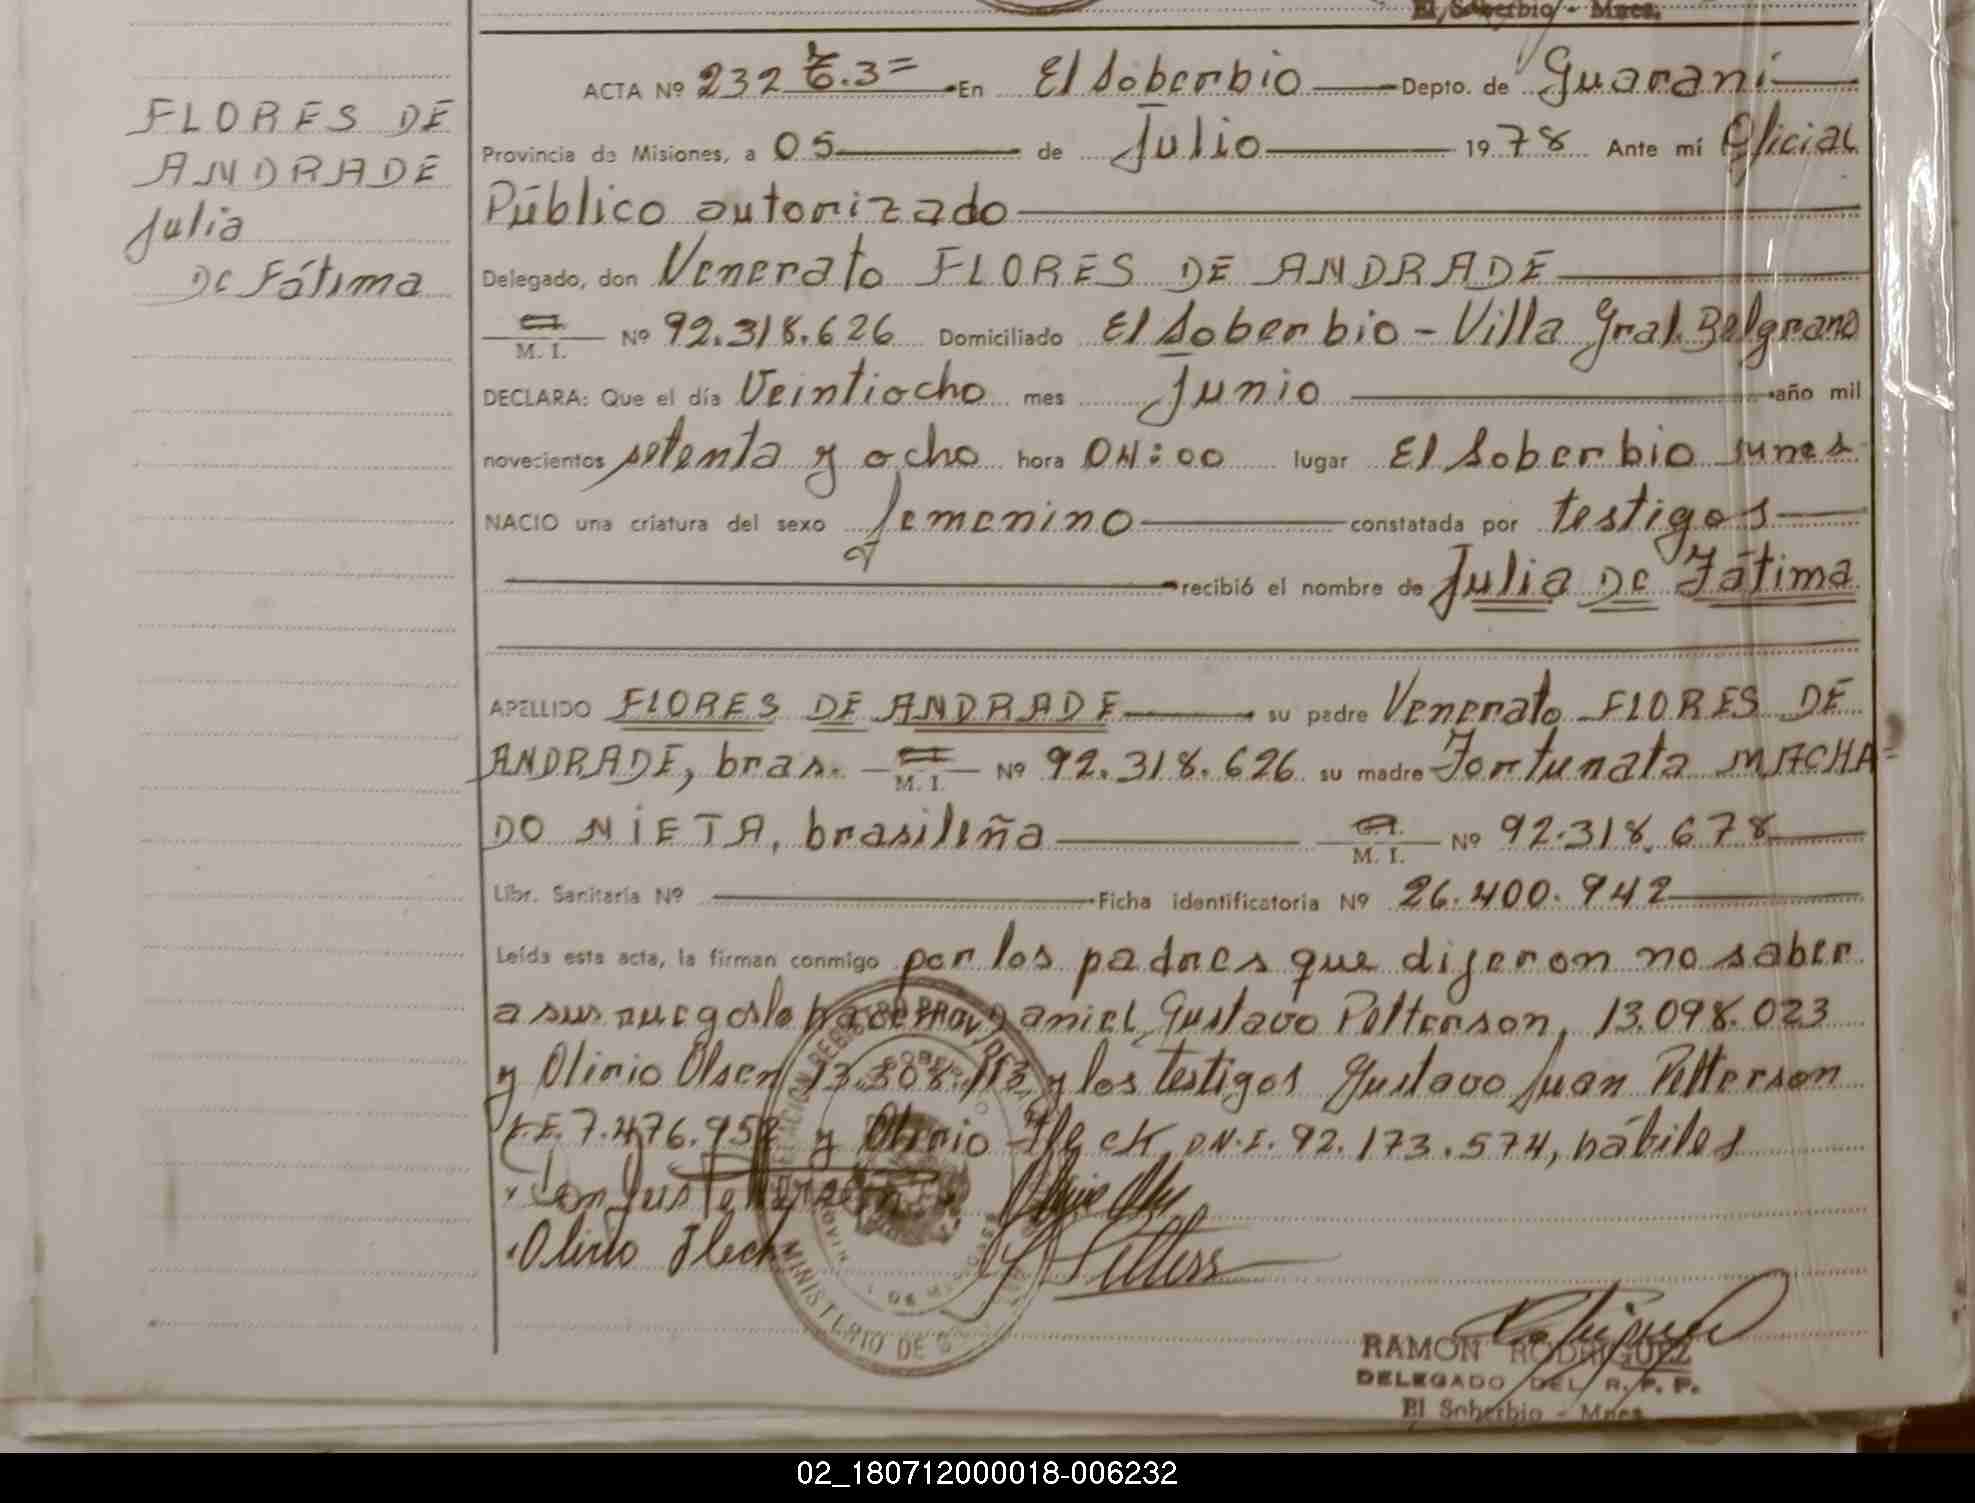 El Soberbio - Mnes.
FLORES DE
ANDRADE
Julia
De Fátima
ACTA Nº 232 T.3= En El Soberbio Depto. de Guaraní
Provincia de Misiones, a 05 de Julio 1978 Ante mí Oficial
Público autorizado
Delegado, don Venerato FLORES DE ANDRADE
M. I. Nº 92.318.626 Domiciliado El Soberbio - Villa Gral. Belgrano
DECLARA: Que el día Veintiocho mes Junio año mil
novecientos setenta y ocho hora 04:00 lugar El Soberbio
NACIO una criatura del sexo femenino constatada por testigos
recibió el nombre de Julia De Fátima
APELLIDO FLORES DE ANDRADE su padre Venerato FLORES DE
ANDRADE, bras. M. I. Nº 92.318.626 su madre Fortunata MACHA=
DO NIETA, brasileña M. I. Nº 92.318.678
Libr. Sanitaria Nº Ficha identificatoria Nº 26.400.942
Leída esta acta, la firman conmigo por los padres que dijeron no saber
a sus ruegos lo hacen Daniel Gustavo Petterson, 13.098.023
y Olirio Olsen 13.308.113 y los testigos Gustavo Juan Petterson
L.E. 7.476.952 y Olirio Fleck D.N.I. 92.173.574, hábiles
Olirio Fleck
MINISTERIO DE
RAMON RODRIGUEZ
DELEGADO DEL R. P. P.
El Soberbio - Mnes.
02_180712000018-006232